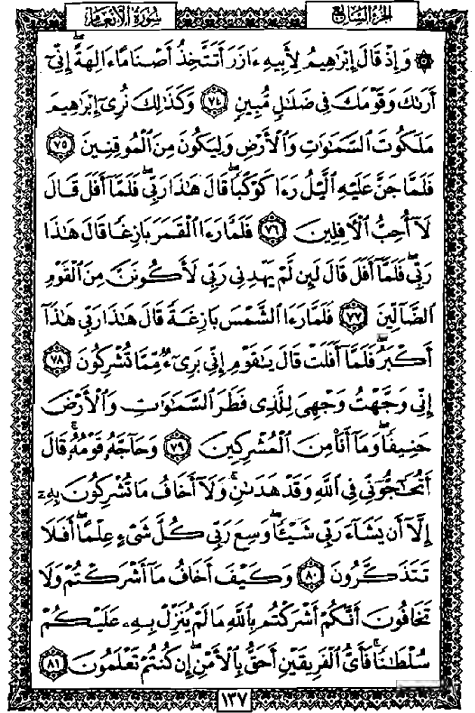 سُورَةُ الأَنْعَام
الجُزْءُ السَّابِع
۞ وَإِذْ قَالَ إِبْرَٰهِيمُ لِأَبِيهِ ءَازَرَ أَتَتَّخِذُ أَصْنَامًا ءَالِهَةً إِنِّىٓ
أَرَىٰكَ وَقَوْمَكَ فِى ضَلَٰلٍ مُّبِينٍ ٧٤ وَكَذَٰلِكَ نُرِىٓ إِبْرَٰهِيمَ
مَلَكُوتَ ٱلسَّمَٰوَٰتِ وَٱلْأَرْضِ وَلِيَكُونَ مِنَ ٱلْمُوقِنِينَ ٧٥
فَلَمَّا جَنَّ عَلَيْهِ ٱلَّيْلُ رَءَا كَوْكَبًا قَالَ هَٰذَا رَبِّى فَلَمَّآ أَفَلَ قَالَ
لَآ أُحِبُّ ٱلْءَافِلِينَ ٧٦ فَلَمَّا رَءَا ٱلْقَمَرَ بَازِغًا قَالَ هَٰذَا
رَبِّى فَلَمَّآ أَفَلَ قَالَ لَئِن لَّمْ يَهْدِنِى رَبِّى لَأَكُونَنَّ مِنَ ٱلْقَوْمِ
ٱلضَّآلِّينَ ٧٧ فَلَمَّا رَءَا ٱلشَّمْسَ بَازِغَةً قَالَ هَٰذَا رَبِّى هَٰذَآ
أَكْبَرُ فَلَمَّآ أَفَلَتْ قَالَ يَٰقَوْمِ إِنِّى بَرِىٓءٌ مِّمَّا تُشْرِكُونَ ٧٨
إِنِّى وَجَّهْتُ وَجْهِىَ لِلَّذِى فَطَرَ ٱلسَّمَٰوَٰتِ وَٱلْأَرْضَ
حَنِيفًا وَمَآ أَنَا۠ مِنَ ٱلْمُشْرِكِينَ ٧٩ وَحَآجَّهُۥ قَوْمُهُۥ قَالَ
أَتُحَٰٓجُّوٓنِّى فِى ٱللَّهِ وَقَدْ هَدَىٰنِ وَلَآ أَخَافُ مَا تُشْرِكُونَ بِهِۦٓ
إِلَّآ أَن يَشَآءَ رَبِّى شَيْـًٔا وَسِعَ رَبِّى كُلَّ شَىْءٍ عِلْمًا أَفَلَا
تَتَذَكَّرُونَ ٨٠ وَكَيْفَ أَخَافُ مَآ أَشْرَكْتُمْ وَلَا
تَخَافُونَ أَنَّكُمْ أَشْرَكْتُم بِٱللَّهِ مَا لَمْ يُنَزِّلْ بِهِۦ عَلَيْكُمْ
سُلْطَٰنًا فَأَىُّ ٱلْفَرِيقَيْنِ أَحَقُّ بِٱلْأَمْنِ إِن كُنتُمْ تَعْلَمُونَ ٨١
١٣٧